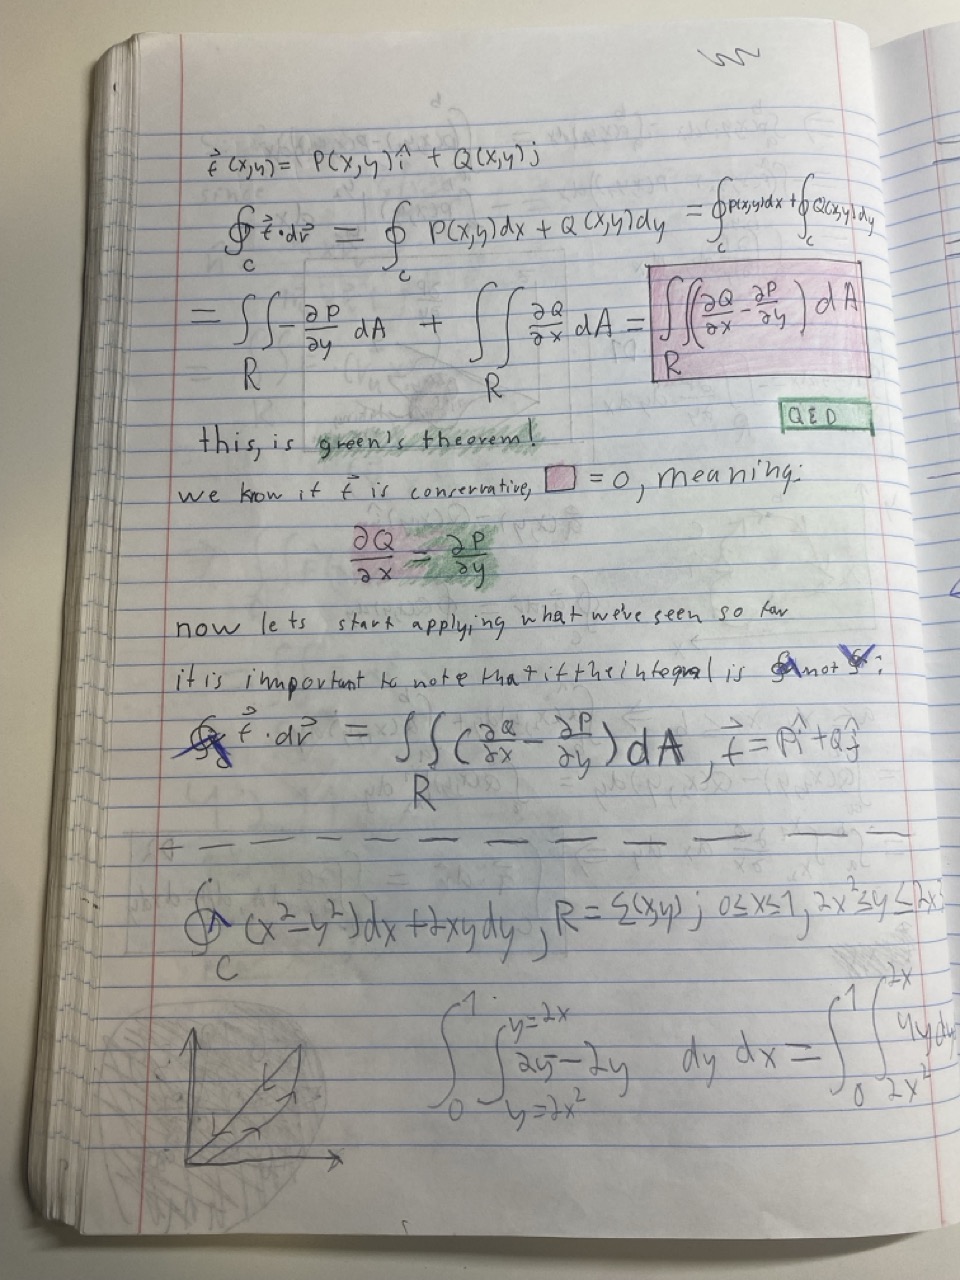 f⃗(x,y) = P(x,y)î + Q(x,y)j
∮_C f⃗·dr⃗ = ∮_C P(x,y)dx + Q(x,y)dy = ∮_C P(x,y)dx + ∮_C Q(x,y)dy
= ∬_R -∂P/∂y dA + ∬_R ∂Q/∂x dA = ∬_R (∂Q/∂x - ∂P/∂y) dA
QED
this, is green's theorem!
we know if f⃗ is conservative, □ = 0, meaning:
∂Q/∂x = ∂P/∂y
now lets start applying what we've seen so far
it is important to note that if the integral is ∮ not ∮:
∮_C f⃗·dr⃗ = ∬_R (∂Q/∂x - ∂P/∂y) dA, f⃗ = Pî + Qĵ
∮_C (x²-y²)dx + 2xy dy, R = {(x,y); 0≤x≤1, 2x²≤y≤2x
∫_0^1 ∫_{y=2x²}^{y=2x} 2y - -2y dy dx = ∫_0^1 ∫_{2x²}^{2x} 4y dy